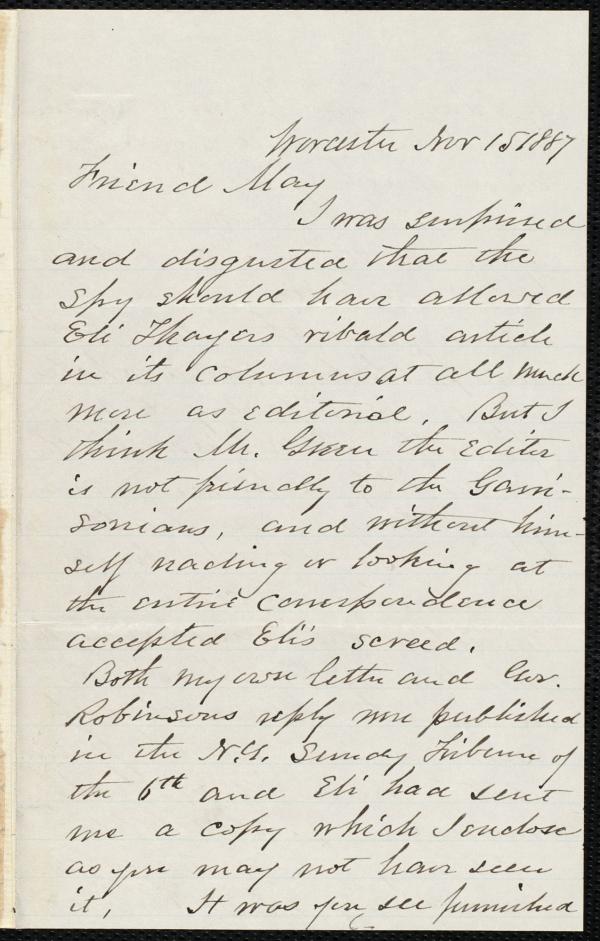 Worcester Nov 15 1887
Friend May
I was surprised
and disgusted that the
Spy should have allowed
Eli Thayers ribald article
in its columns at all much
more as editorial. But I
think Mr. Green the Editor
is not friendly to the Garri-
sonians, and without him-
self reading or looking at
the entire correspondence
accepted Eli's screed.
Both my own letter and Gov.
Robinsons reply were published
in the N.Y. Sunday Tribune of
the 6th and Eli had sent
me a copy which I enclose
as you may not have seen
it, It was you see furnished